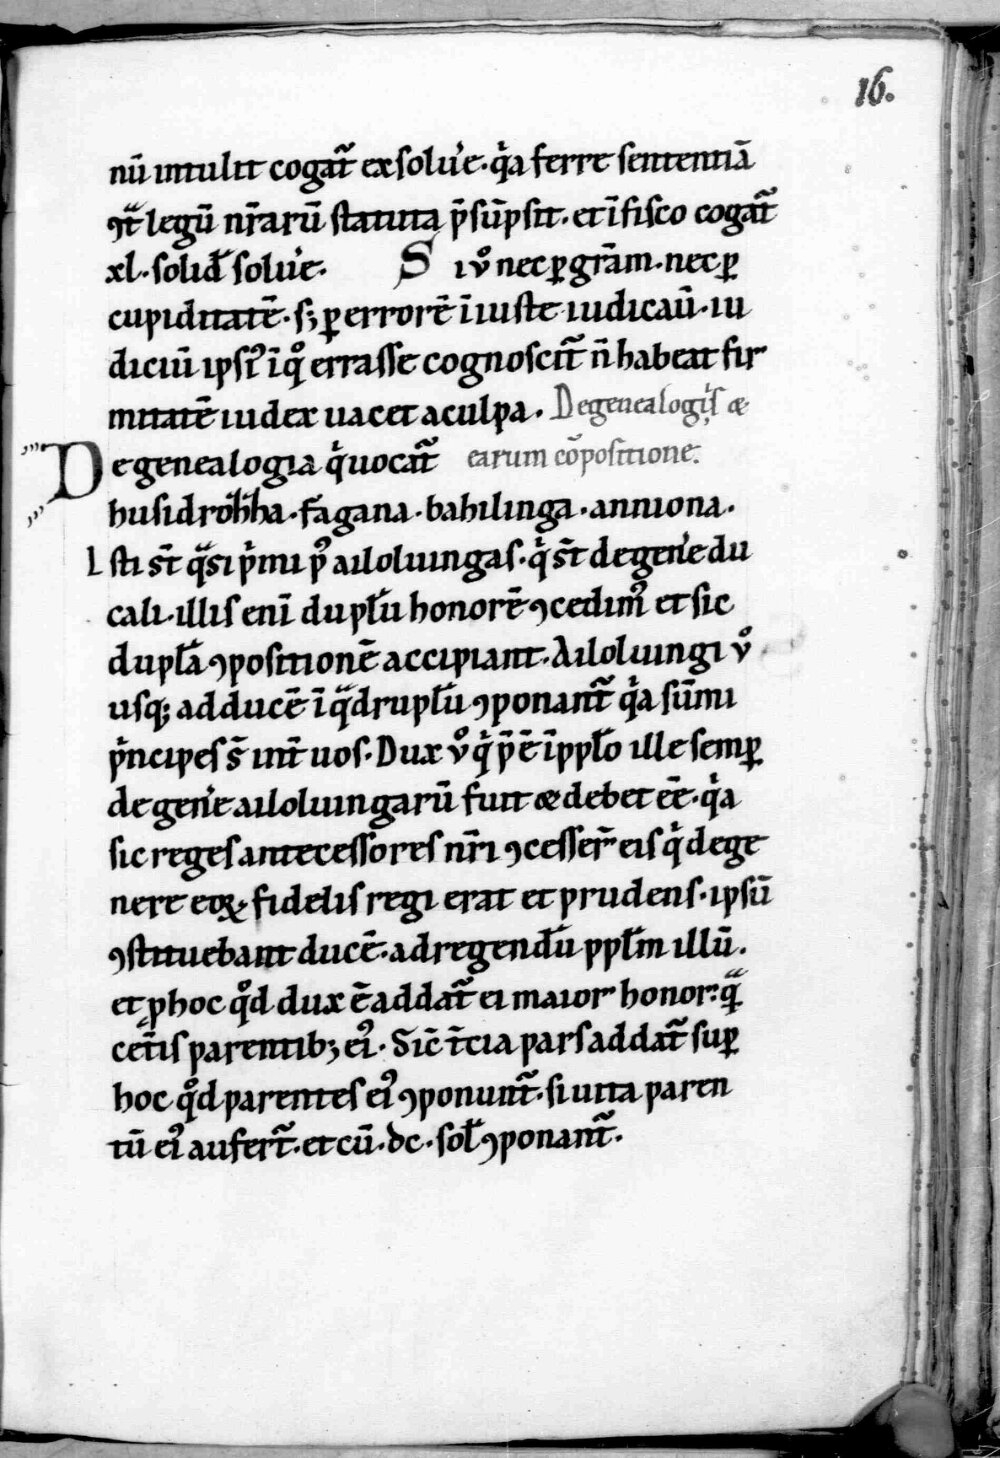 16.
nū intulit cogat̄ exsolu'e · qͥa ferre sententiā
ꝯtᷓ legū nr̄arū statuta p̄sūpsit · et ī fisco cogat̄
xl · solid̄ solu'e · S i uͦ nec ꝑ gr̄am · nec ꝑ
cupiditatē · sꝫ ꝑ errorē iniuste iudicaū · iu
diciū ipsiꝰ ī qͦ errasse cognoscit̄ n̄ habeat fir
mitatē iudex uacet a culpa · De genealogiis ⁊
De genealogia qͥ uocat̄ earum cōpositione:
husidrohha · fagana · hahilinga · anniona ·
Isti st̄ qᷓsi pͥmi pꝰ ailoluingas · qͥ st̄ de gen'e du
cali · illis enī duplū honorē ꝯcedimꝰ et sic
duplā ꝯpositionē accipiant · Ailoluingi uͦ
usqꝫ ad ducē ī qᷓdruplū ꝯponant̄ qͥa sūmi
pͥncipes s̄ int̄ uos · Dux uͦ qͥ p̄ē ī pplo ille semꝑ
de gen'e ailoluingarū fuit ⁊ debet ēē · qͥa
sic reges antecessores nr̄i ꝯcesser̄ eis qͥ de ge
nere eoꝝ fidelis regi erat et prudens · ipsū
ꝯstituebant ducē · ad regendū pplm illū ·
et ꝓ hoc qͦd dux ē addat̄ ei maior honor: qᷓ
cet̄is parentibꝫ eiꝰ · Sic̄ t̄cia pars addat̄ suꝑ
hoc qͦd parentes eiꝰ ꝯponunt̄ · si uita paren
tū eiꝰ aufert̄ · et cū · dc · sol̄ ꝯponant̄ ·